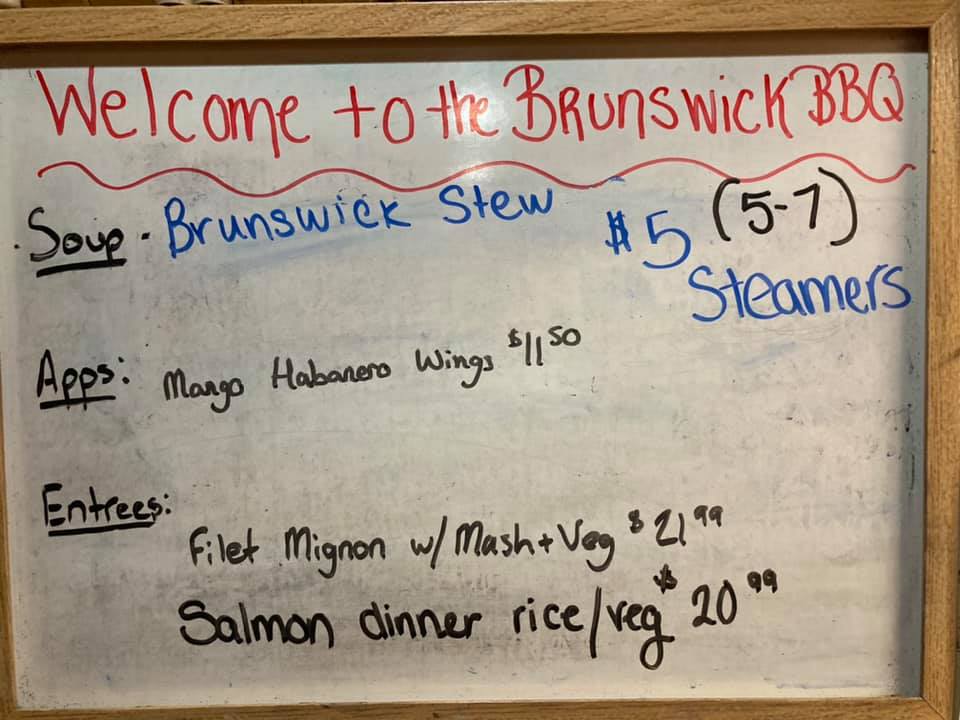 Welcome to the Brunswick BBQ
Soup - Brunswick Stew $5 (5-7)
Steamers
Apps: Mango Habanero Wings $11.50
Entrees:
Filet Mignon w/ Mash + Veg $21.99
Salmon dinner rice/veg $20.99